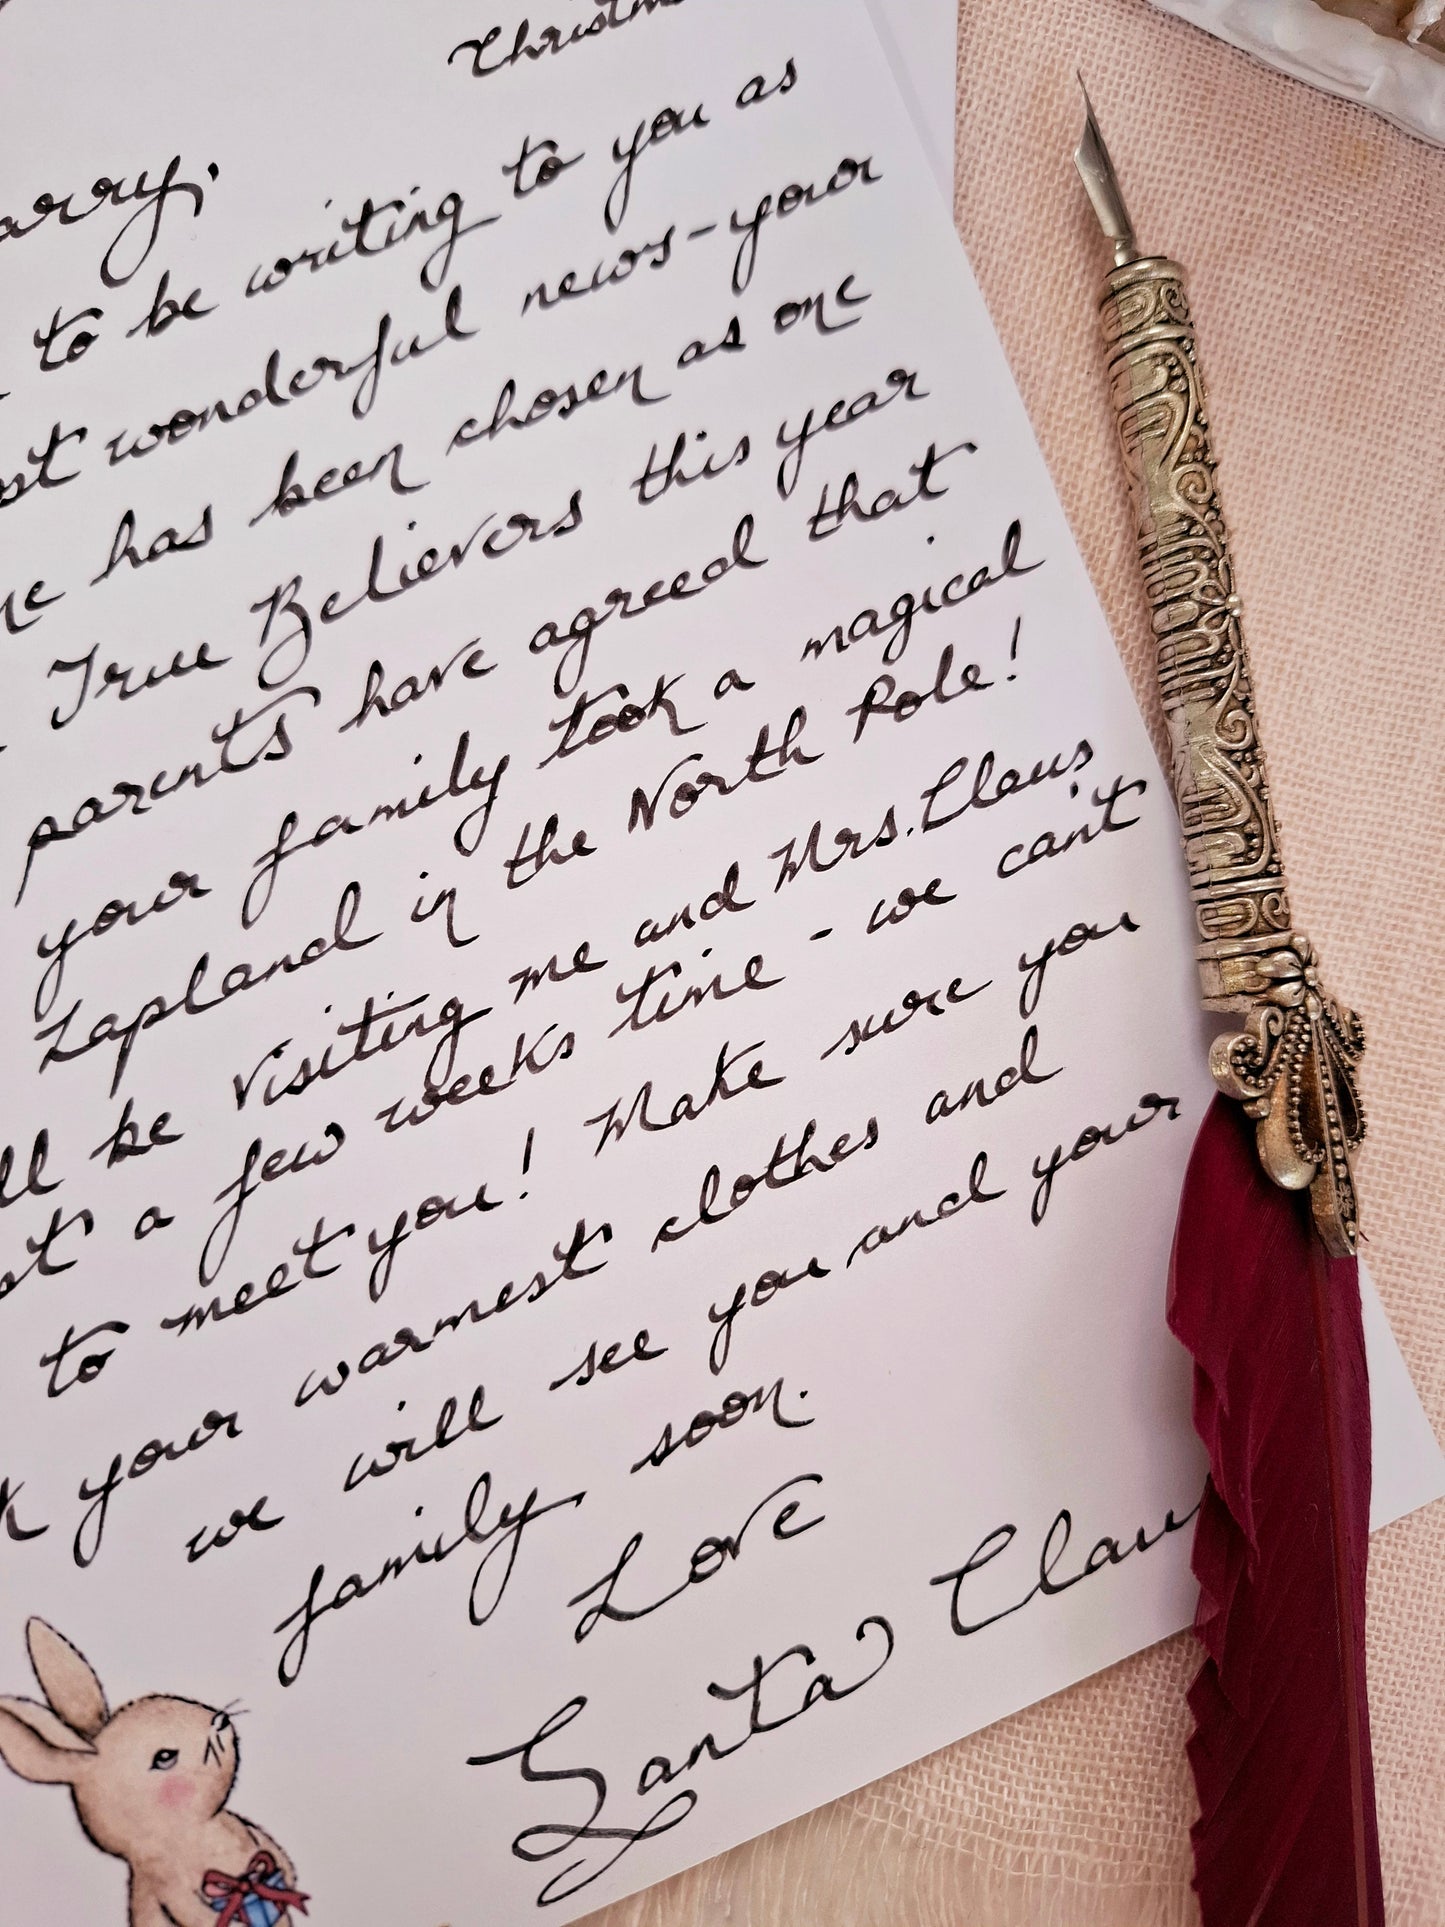 Christm
arry,
to be writing to you as
st wonderful news-your
me has been chosen as one
True Believers this year
parents have agreed that
your family took a magical
Lapland in the North Pole!
ll be visiting me and Mrs. Claus
st a few weeks time - we can't
to meet you! Make sure you
k your warmest clothes and
we will see you and your
family soon.
Love
Santa Clau